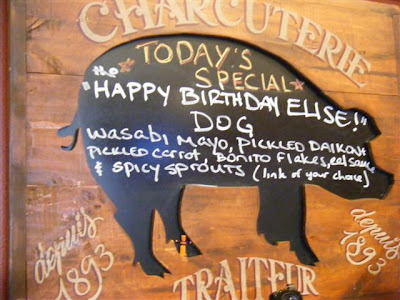 CHARCUTERIE
TODAY'S
SPECIAL
the
"HAPPY BIRTHDAY ELISE!"
DOG
wasabi Mayo, PICKLED DAIKON &
PICKLED CARROT, BONITO FLAKES, eel sauce
& SPICY SPROUTS (link of your choice)
depuis
1893
depuis
1893
TRAITEUR